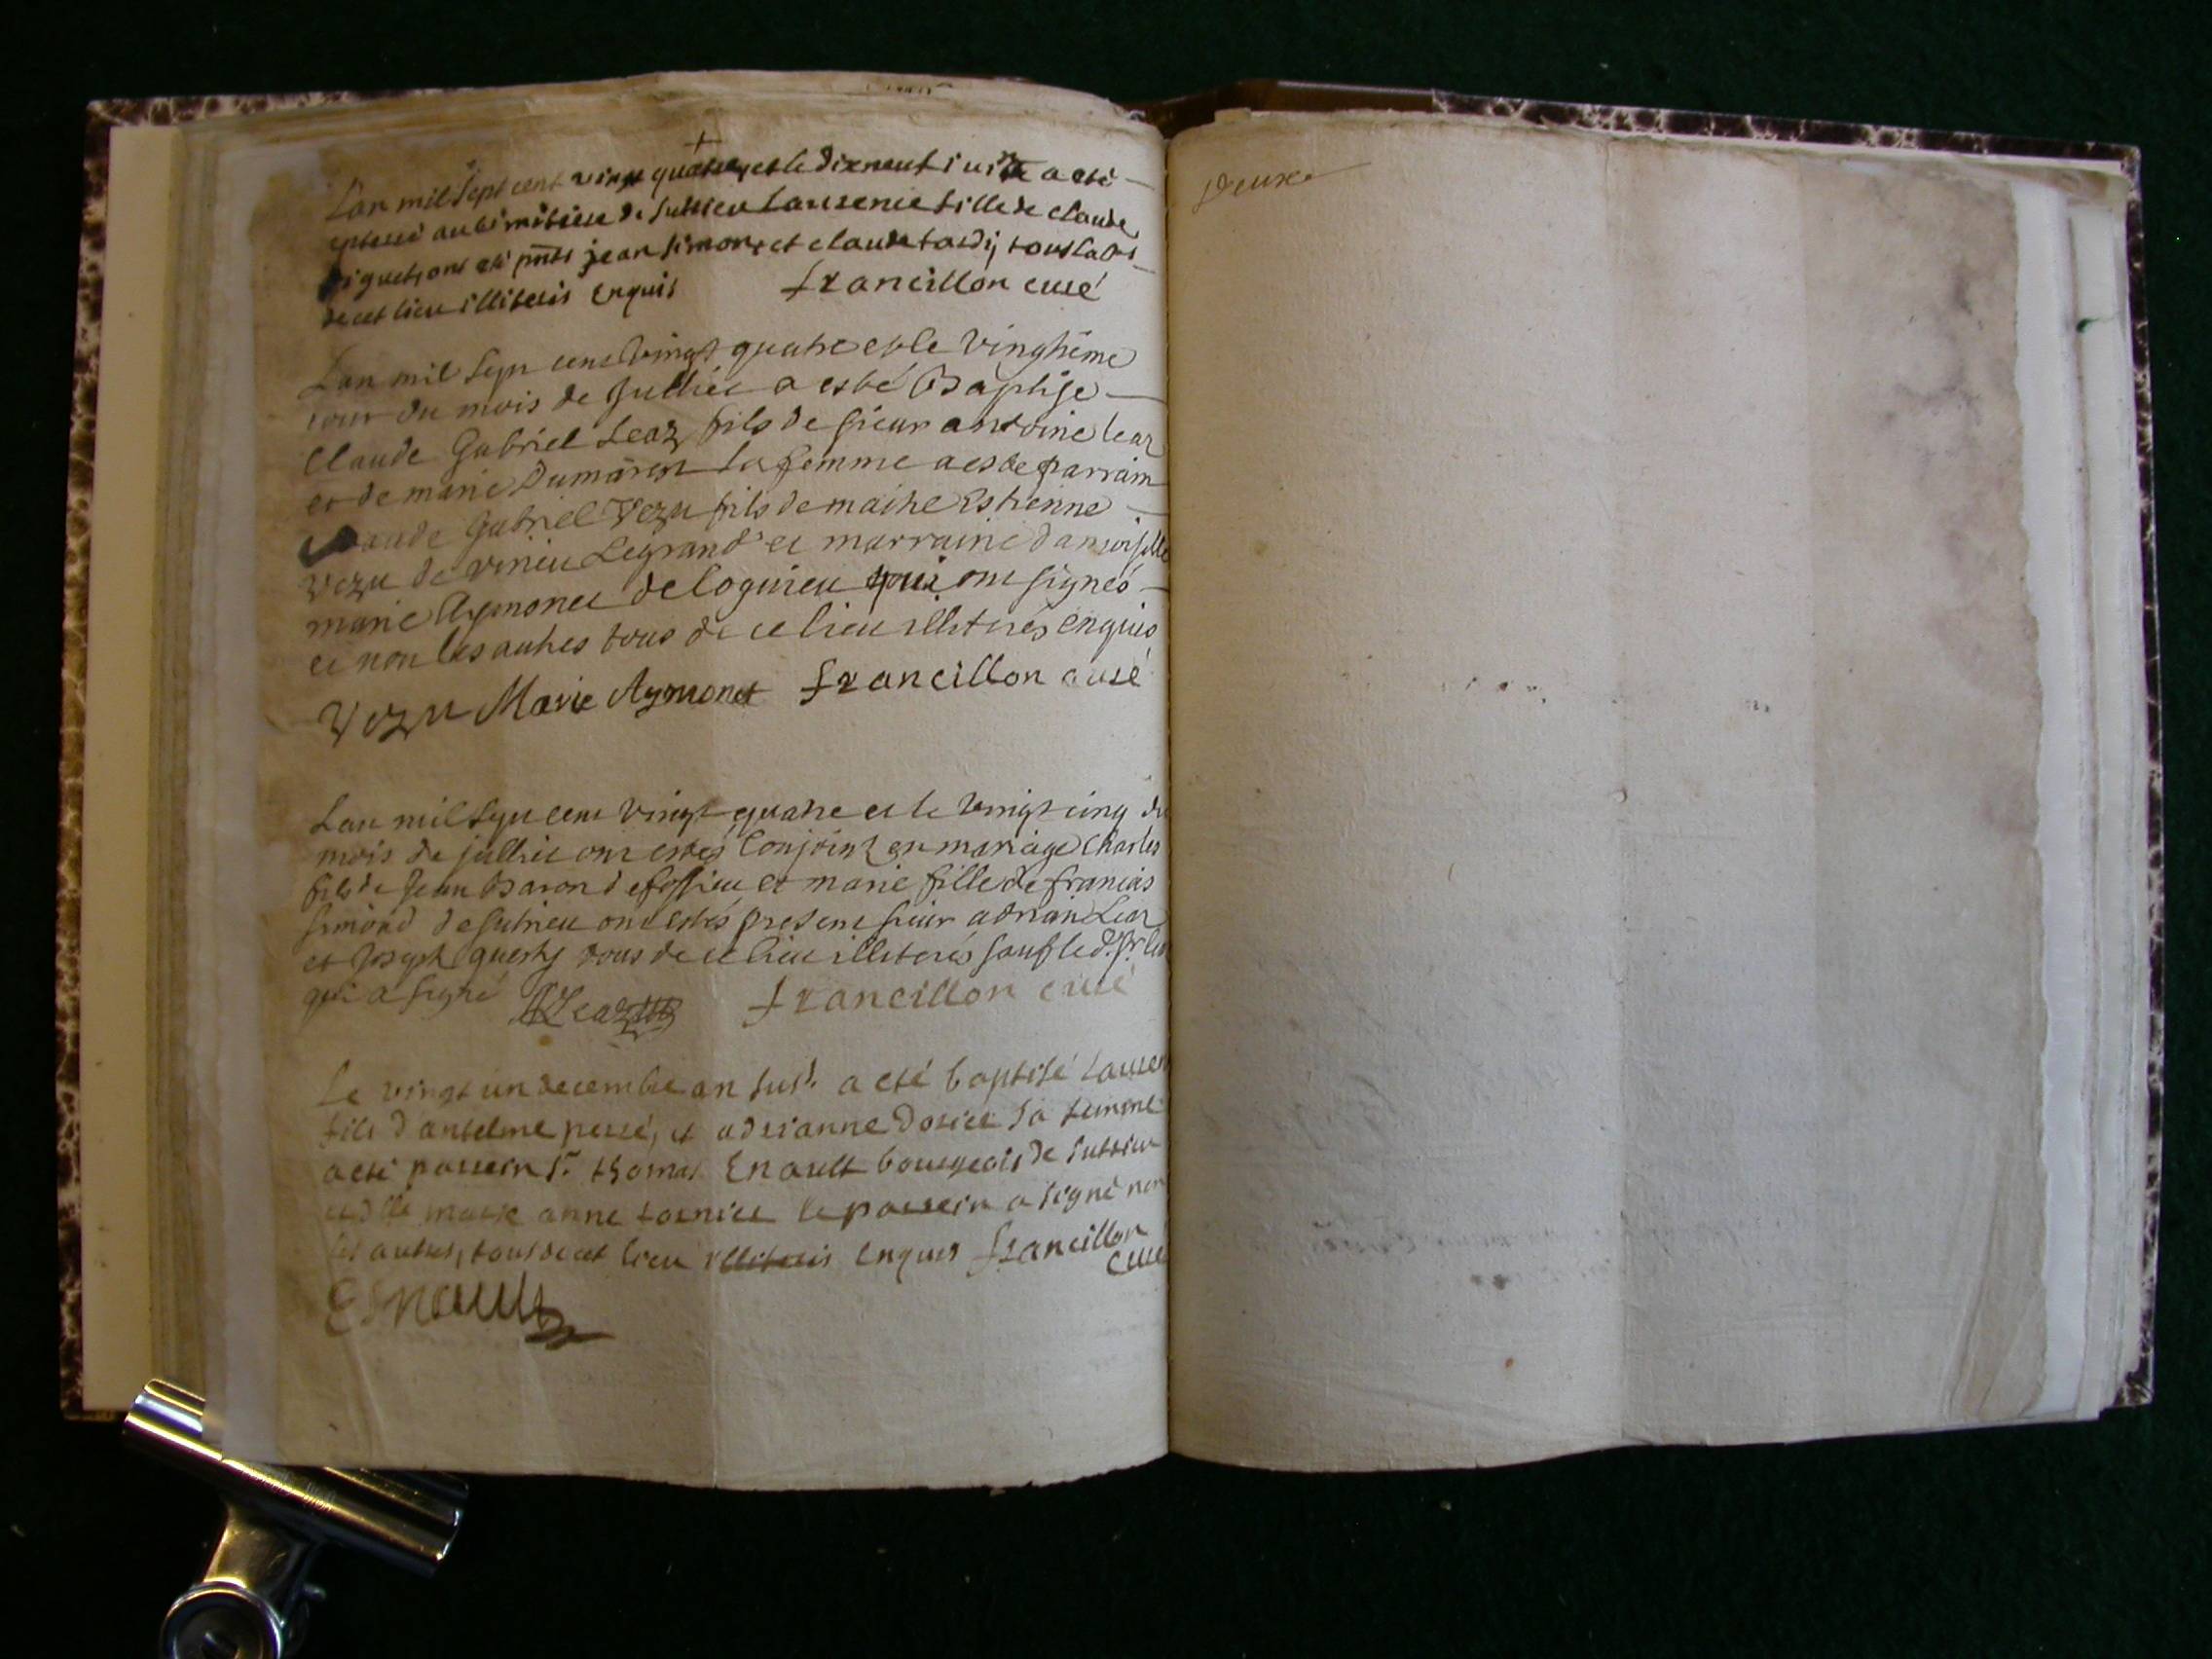 +
L'an mil sept cent vingt quatre, et le dixneuf juin a eté
enterré au cimitiere de Suttieu Laurence fille de claude
piguet, ont eté pnts jean simon, et claude tardy tous labrs
de cet lieu illiterés enquis francillon curé
Lan mil sept cent vingt quatre et le vingtiéme
iour du mois de Julliet a esté Baptise
Claude Gabriel Leaz fils de sieur antoine leaz
et de marie Dumarest sa femme a este parrain
claude Gabriel Vezu fils de maitre Estienne
vezu de virieu Legrand et marraine damoiselle
marie Aymonet de lognieu qui ont signés
et non les autres tous de ce lieu illiterés enquis
Vezu Marie Aymonet francillon curé
Lan mil sept cent vingt quatre et le vingt cinq du
mois de julliet ont estés conjoint en mariage Charles
fils de Jean Baron de et marie fille de francois
simond de Sutrieu ont estés present sieur adrian Leaz
et Joseph tous de ce lieu illiterés sauf le dt sr leaz
qui a signé ALeaz francillon curé
Le vingt un decembre an susd. a eté baptisé Lauren
fils d'antelme perré, et adrianne sa femme
a eté parrein sr. thomas Enault bourgeois de Suttieu
et dlle marie anne le parrein a signé non
les autres, tous de cet lieu illiterés enquis francillon
curé
Esnault
Deuxe